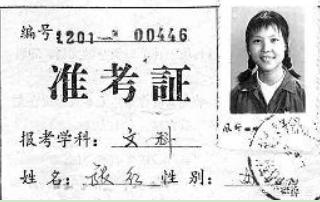 编号 1201— 00446
准考証
报考学科：文科
姓名： 性别：女